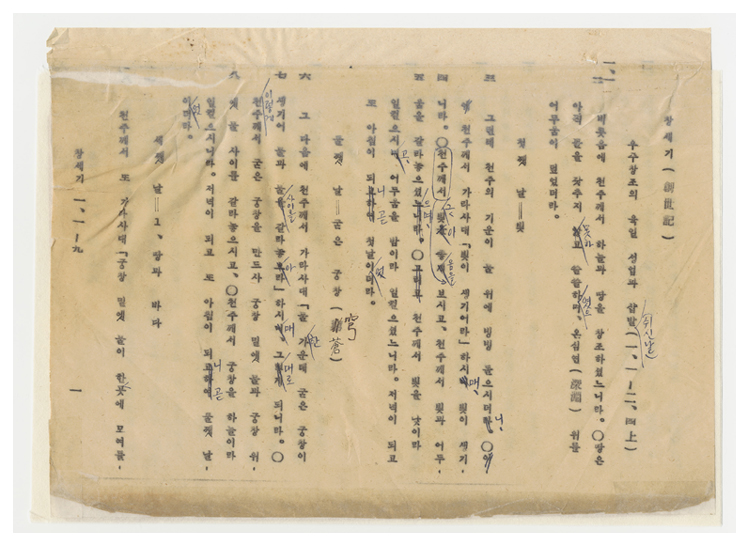 창세기 (創世記)
우주창조의 육일 성업과 (쉬신날) (一, 一-二, 四上)
一, 一 二 비롯음에 천주께서 하늘과 땅을 창조하셨느니라. 〇땅은
아직 꼴을 갖추지 못하고 쓸쓸하며, 온심연 (深淵) 위를
어두움이 덮었더라.
첫쨋 날=빛
三 그런데 천주의 기운이 물 위에 빙빙 돌으시더니. 〇
천주께서 가라사대「빛이 생기어라」하시매, 빛이 생기
四 니라. 〇천주께서 빛을 보시고, 천주께서 빛과 어두
五 움을 갈라놓으셨느니라. 〇그리고 천주께서 빛을 낮이라
일컬으시고 어두움을 밤이라 일컬으셨느니라. 저녁이 되고
또 아침이 되니 곧 첫날이더라.
둘쨋 날=굳은 궁창 (穹蒼)
六 그 다음에 천주께서 가라사대「물 가운데 굳은 궁창이
七 생기어 물과 물 사이를 갈라놓아라」하시매. 그대로 되니라. 〇
이렇게 천주께서 굳은 궁창을 만드사 궁창 밑엣 물과 궁창 위
八 엣 물 사이를 갈라놓으시고, 〇천주께서 궁창을 하늘이라
일컬으시니라. 저녁이 되고 또 아침이 되니 곧 둘쨋 날
이더라.
세쨋 날=1, 땅과 바다
천주께서 또 가라사대「궁창 밑엣 물이 한곳에 모여들
창세기 一, 一-九 一